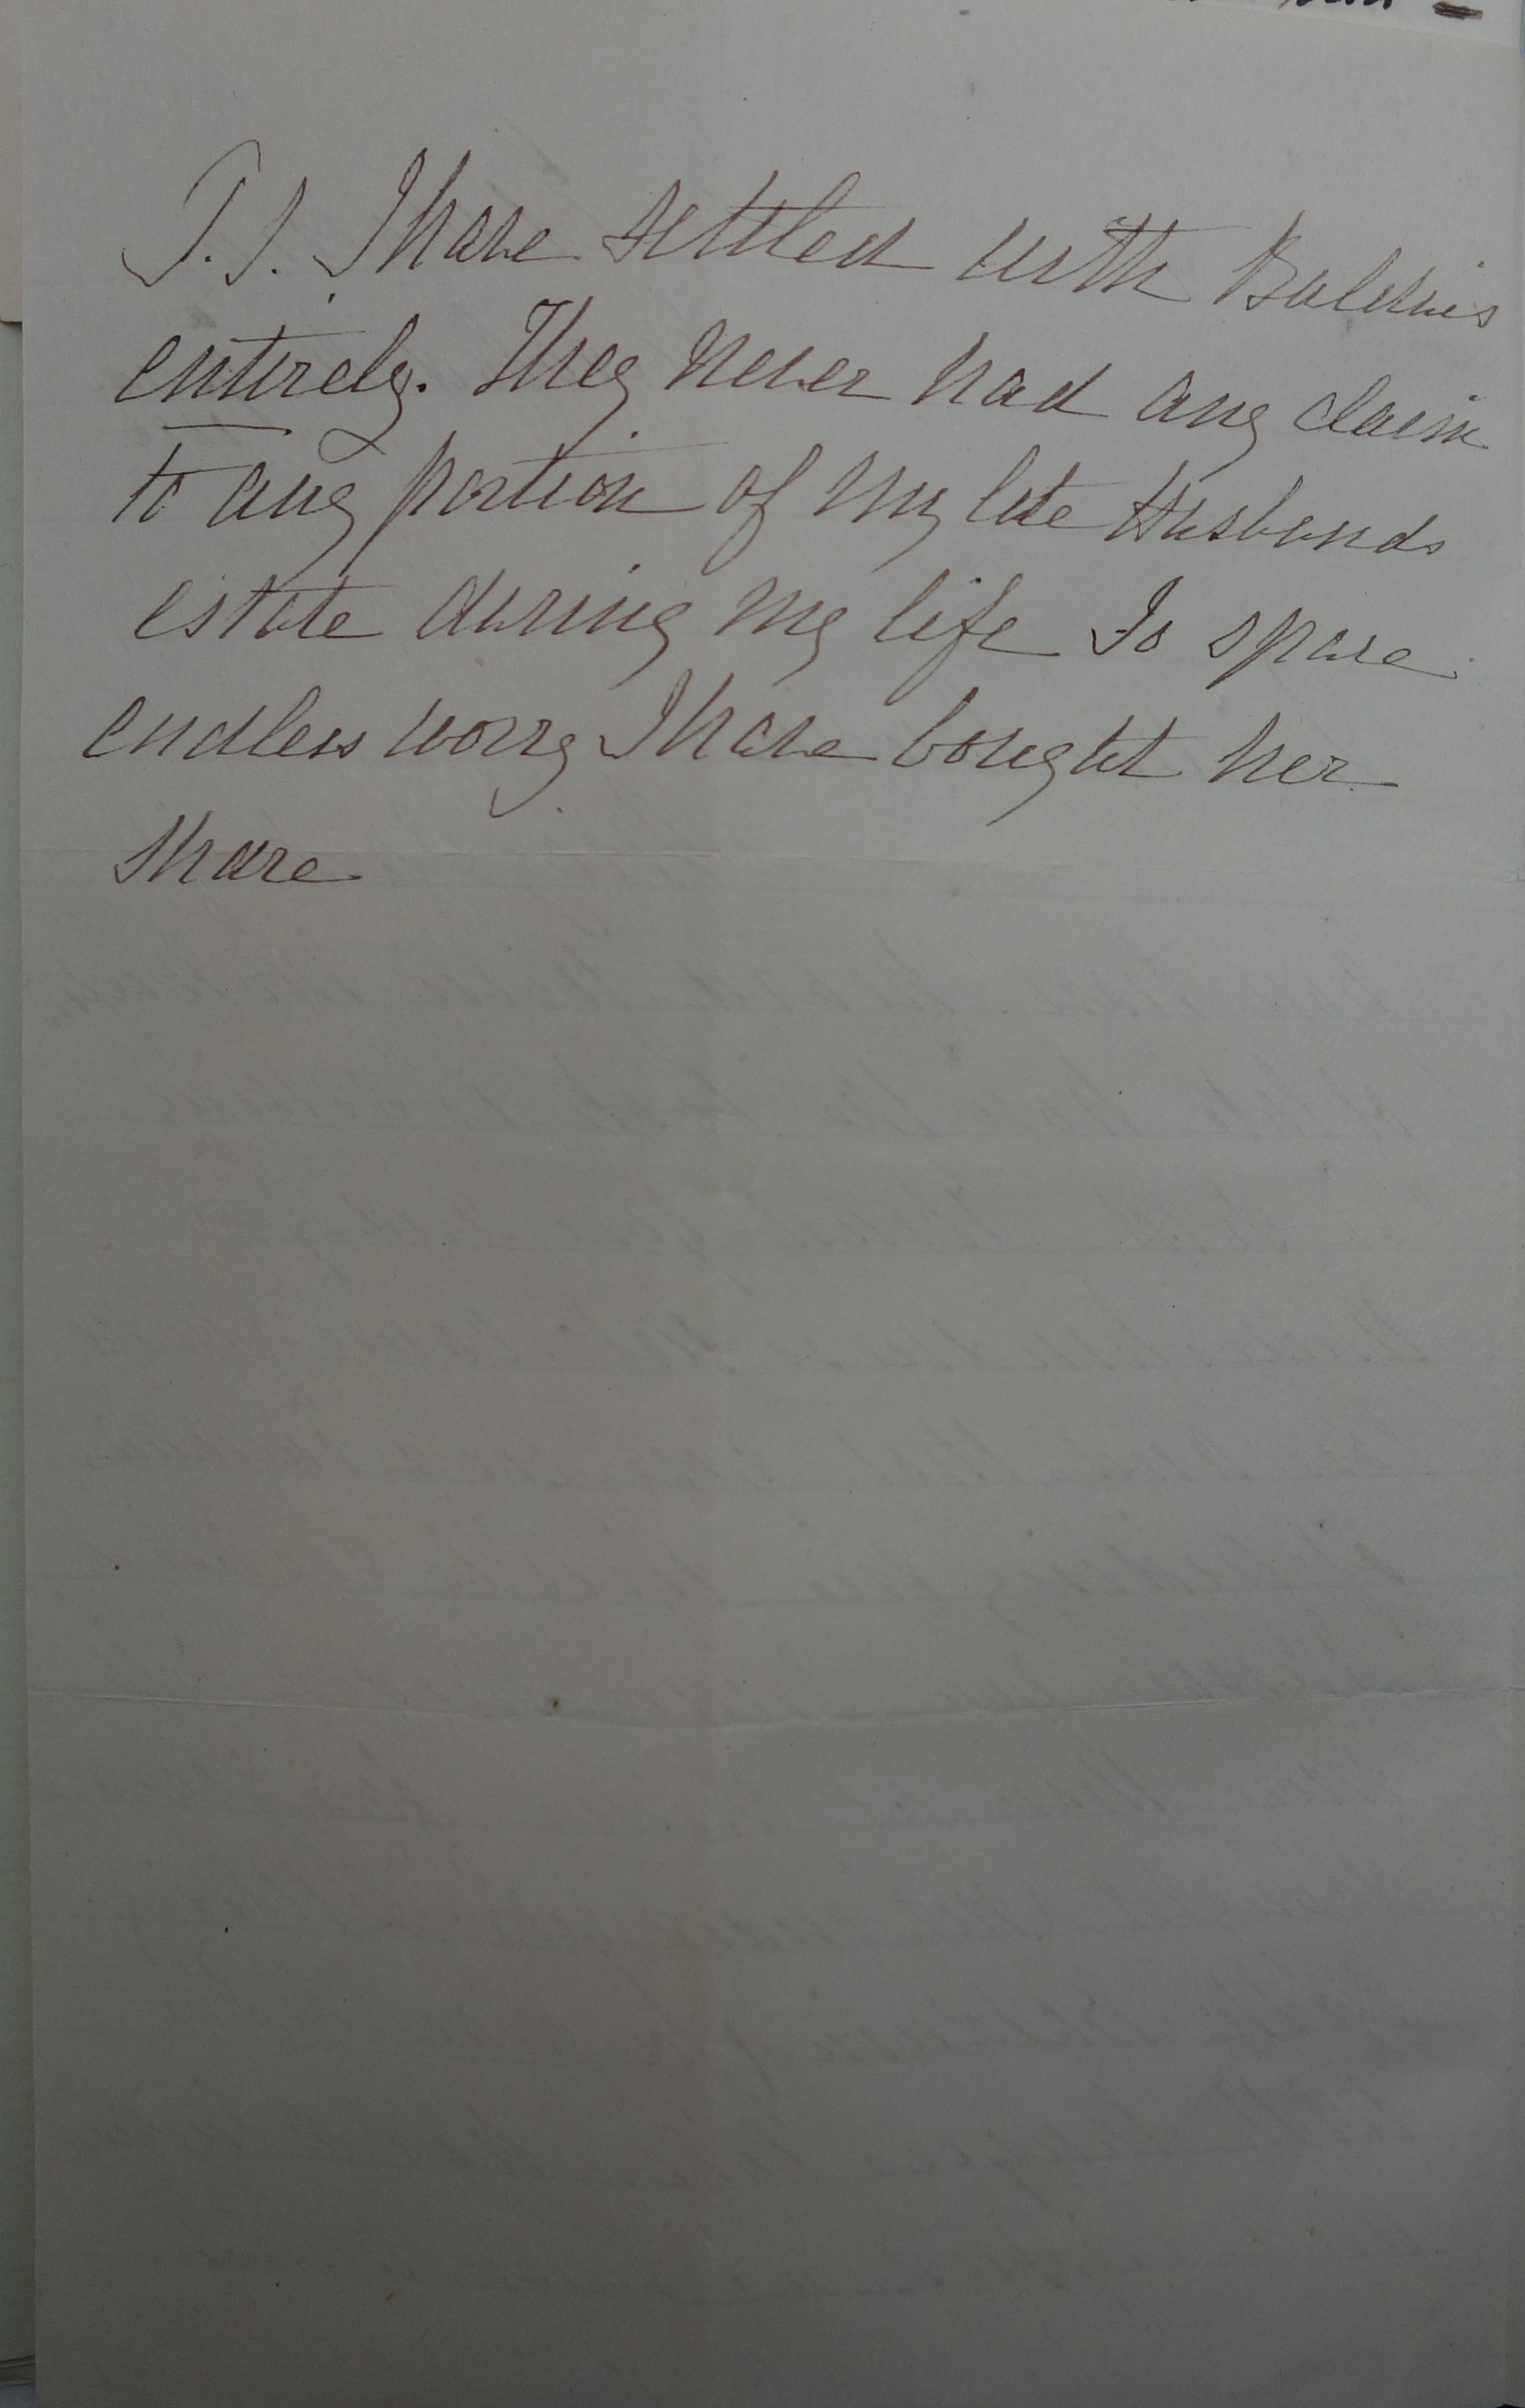 P.S. I have settled with Baldwins
entirely. They never had any claim
to any portion of my late Husbands
estate during my life To spare
endless worry I have bought her
share